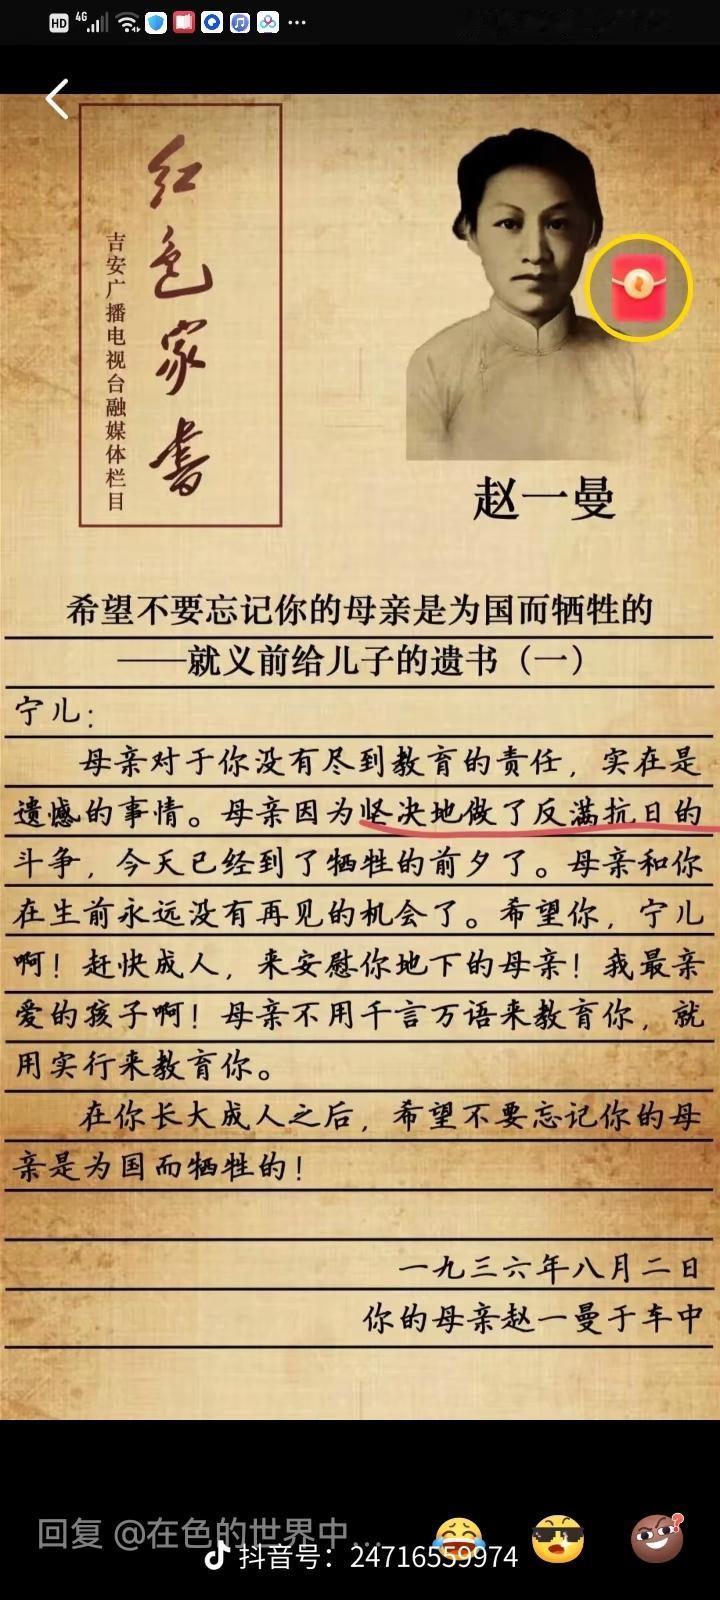 HD 4G
红色家书
吉安广播电视台融媒体栏目
赵一曼
希望不要忘记你的母亲是为国而牺牲的
——就义前给儿子的遗书（一）
宁儿：
母亲对于你没有尽到教育的责任，实在是
遗憾的事情。母亲因为坚决地做了反满抗日的
斗争，今天已经到了牺牲的前夕了。母亲和你
在生前永远没有再见的机会了。希望你，宁儿
啊！赶快成人，来安慰你地下的母亲！我最亲
爱的孩子啊！母亲不用千言万语来教育你，就
用实行来教育你。
在你长大成人之后，希望不要忘记你的母
亲是为国而牺牲的！
一九三六年八月二日
你的母亲赵一曼于车中
回复 @在色的世界中...
抖音号：24716559974